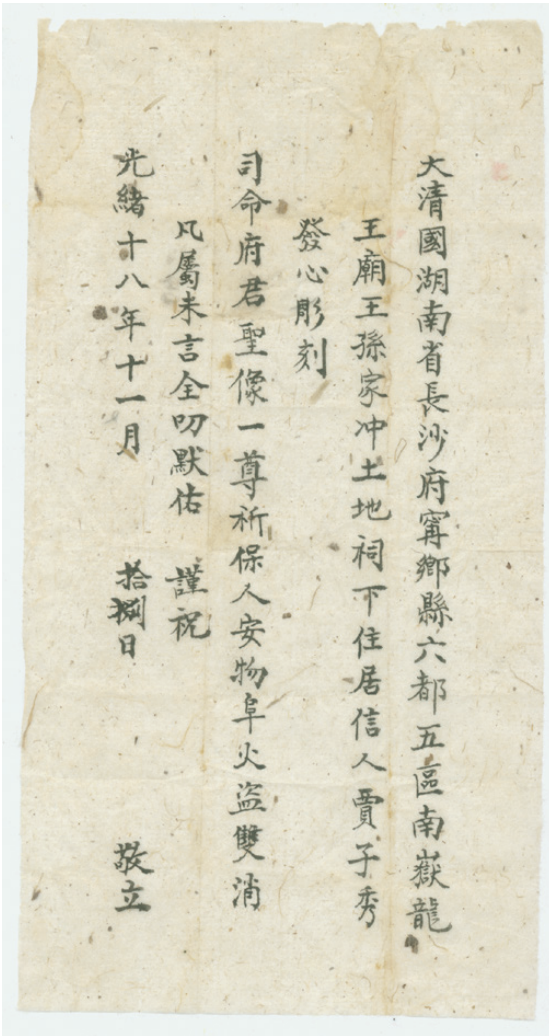 大清國湖南省長沙府甯鄉縣六都五區南嶽龍
王廟王孫家冲土地祠下住居信人賈子秀
發心彫刻
司命府君聖像一尊祈保人安物阜火盜雙消
凡屬未言全叨默佑 謹祝
光緒十八年十一月 拾捌日 敬立